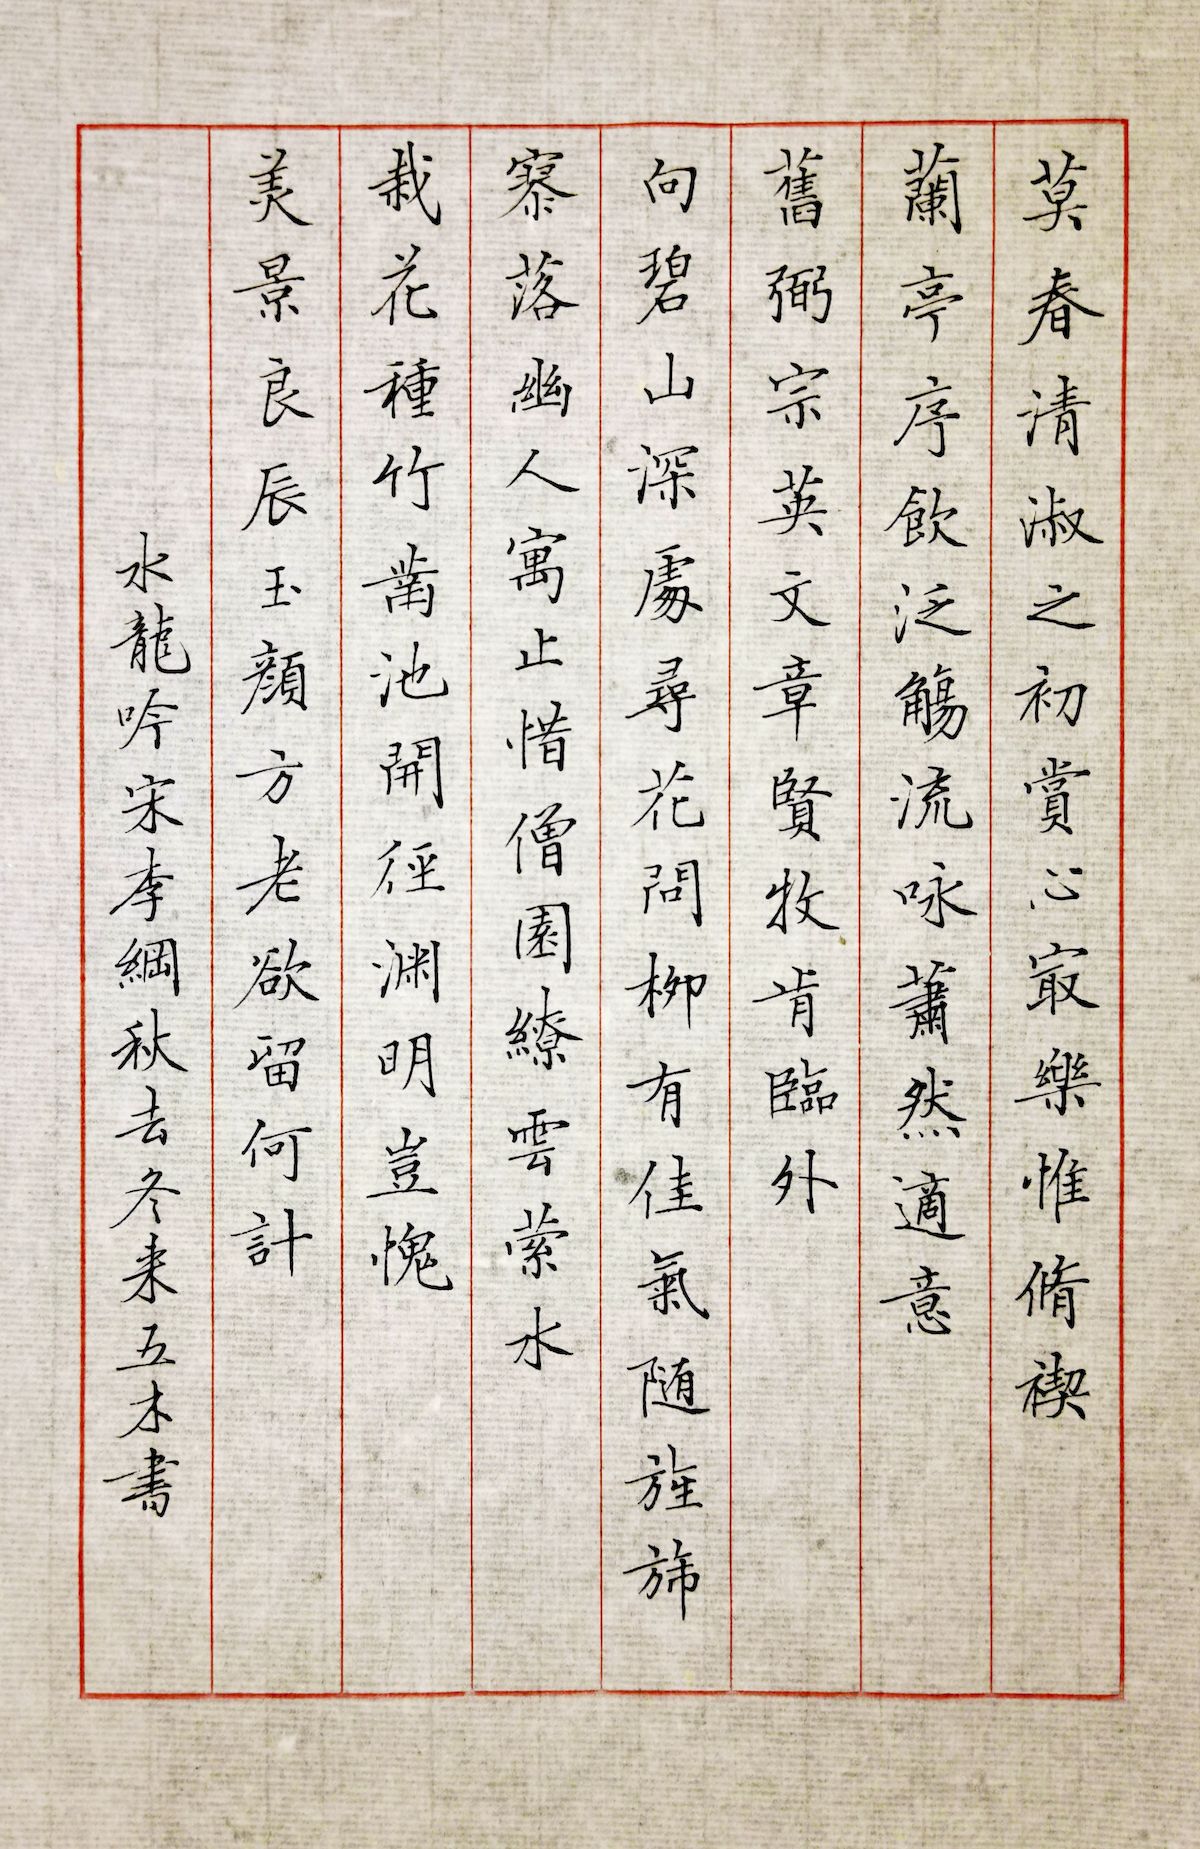 莫春清淑之初賞心㝡樂惟脩禊
蘭亭序飲泛觴流咏蕭然適意
舊弼宗英文章賢牧肯臨外
向碧山深處尋花問柳有佳氣随旌斾
寥落幽人寓止惜僧園繚雲萦水
栽花種竹凿池開徑渊明豈愧
美景良辰玉顔方老欲留何計
水龍吟宋李綱秋去冬来五木書